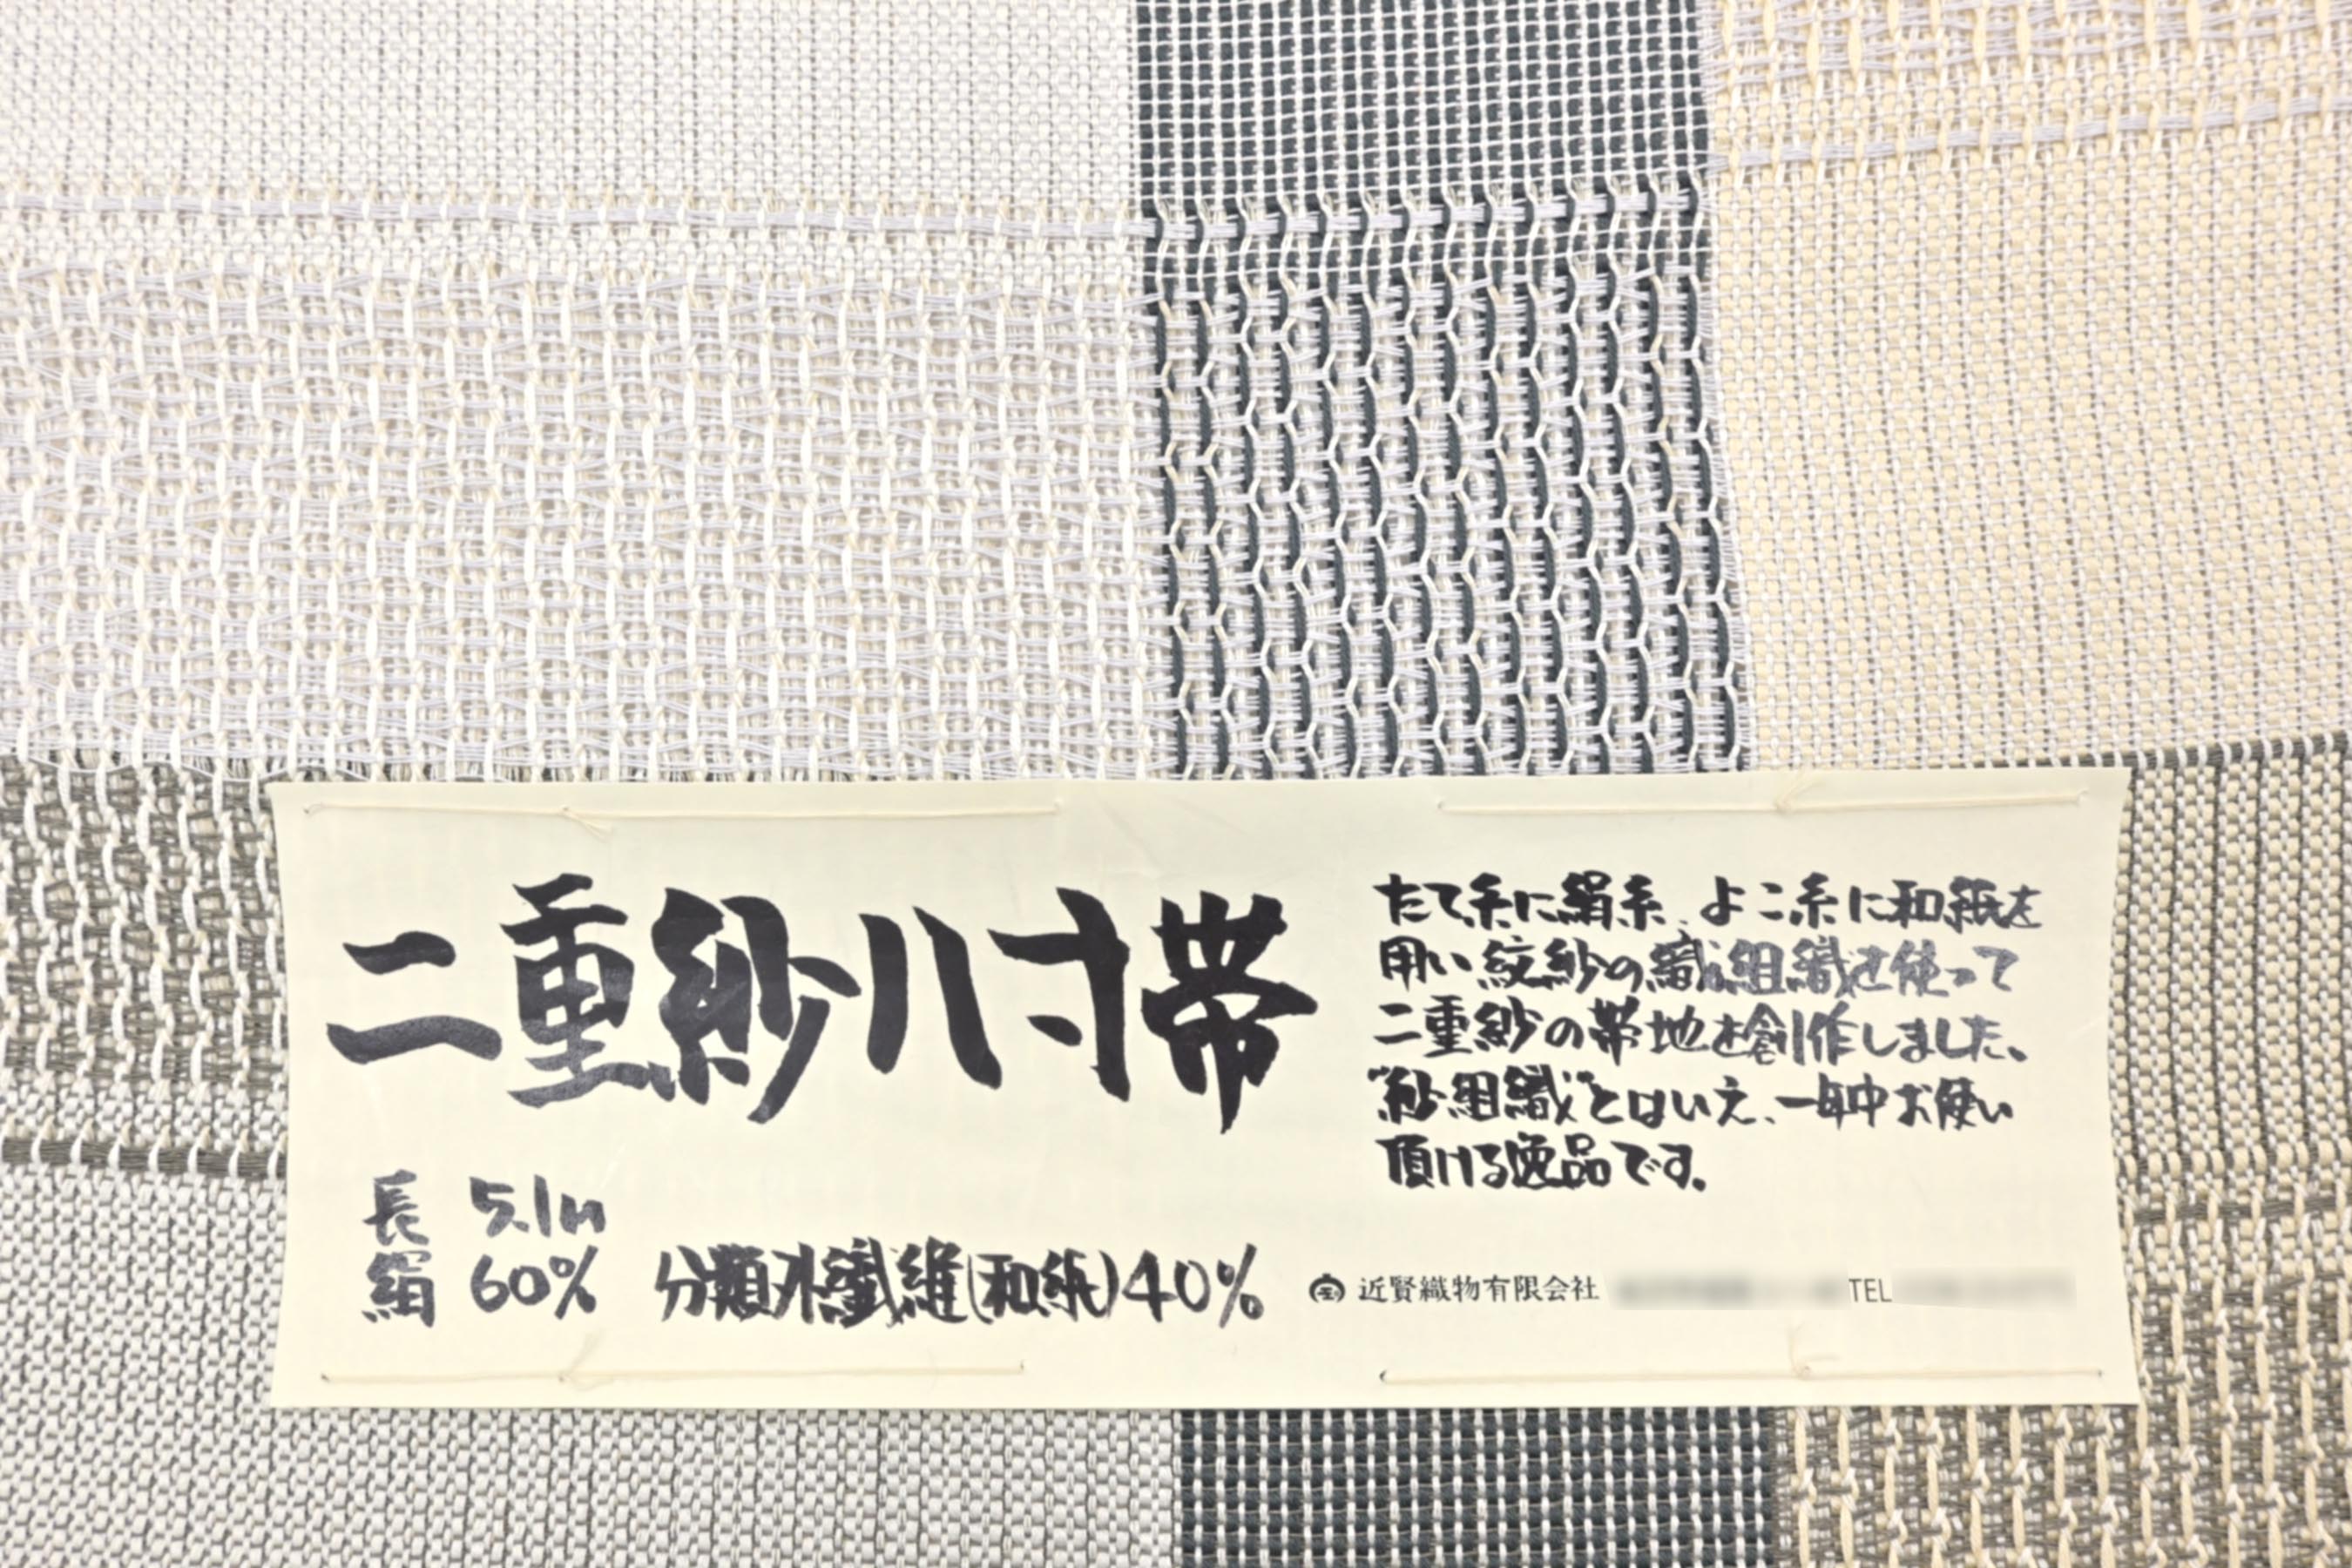 二重紗八寸帯
長 5.1m
絹 60% 分類外繊維(和紙)40%
たて糸に絹糸、よこ糸に和紙を
用い紋紗の織組織を使って
二重紗の帯地を創作しました。
"紗組織"とはいえ、一年中お使い
頂ける逸品です。
近賢織物有限会社 TEL